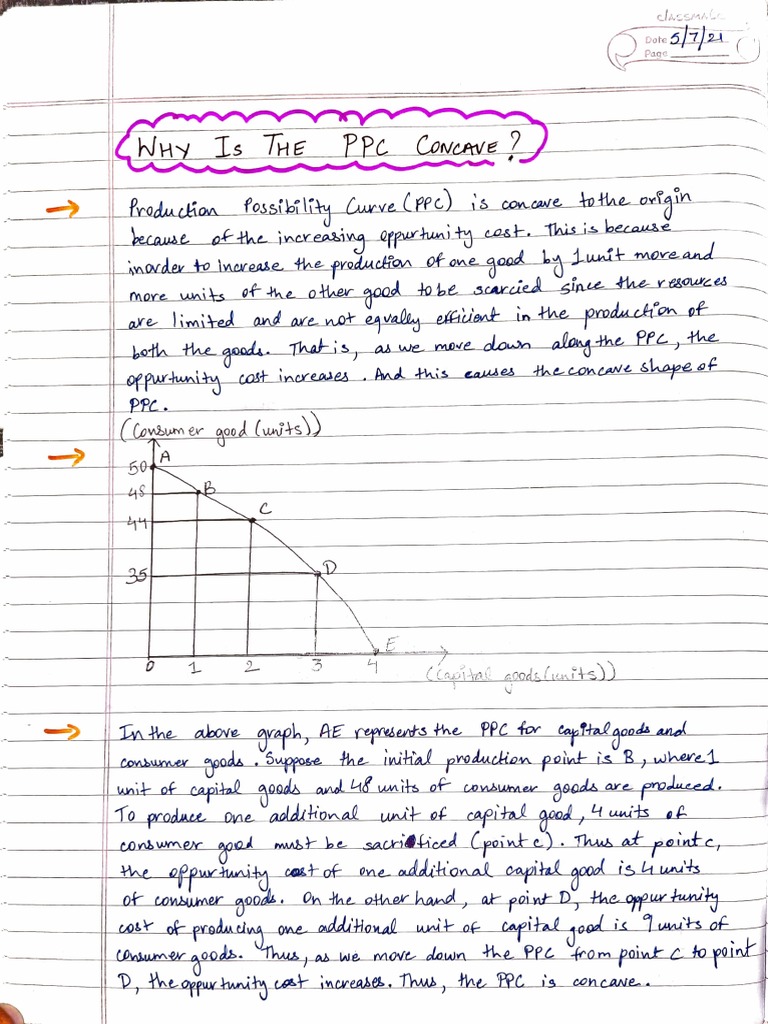 classmate
Date 5/7/21
Page
WHY IS THE PPC CONCAVE?
Production Possibility Curve (PPC) is concave to the origin
because of the increasing oppurtunity cost. This is because
inorder to increase the production of one good by 1 unit more and
more units of the other good to be scarcied since the resources
are limited and are not equally efficient in the production of
both the goods. That is, as we move down along the PPC, the
oppurtunity cost increases. And this causes the concave shape of
PPC.
(Consumer good (units))
A
50
48
B
C
44
35
D
E
0 1 2 3 4
(Capital goods (units))
In the above graph, AE represents the PPC for capital goods and
consumer goods. Suppose the initial production point is B, where 1
unit of capital goods and 48 units of consumer goods are produced.
To produce one additional unit of capital good, 4 units of
consumer good must be sacrificed (point c). Thus at point c,
the oppurtunity cost of one additional capital good is 4 units
of consumer goods. On the other hand, at point D, the oppurtunity
cost of producing one additional unit of capital good is 9 units of
consumer goods. Thus, as we move down the PPC from point C to point
D, the oppurtunity cost increases. Thus, the PPC is concave.